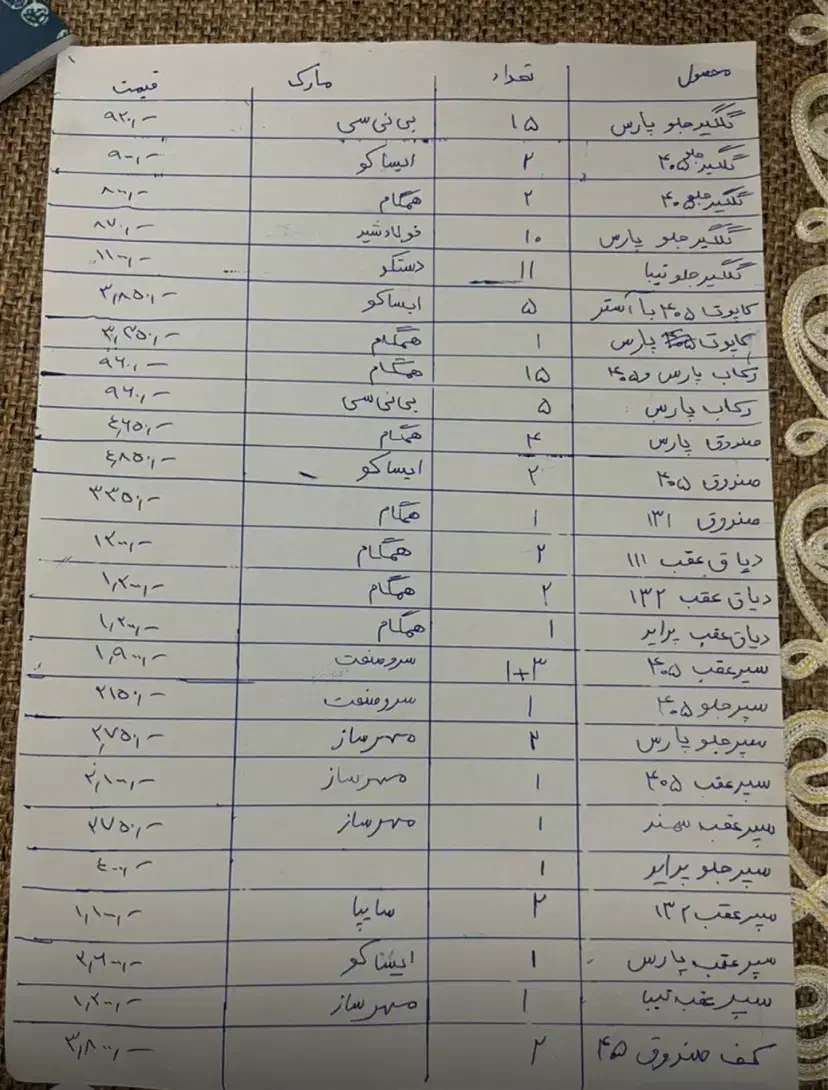 محصول تعداد مارک قیمت
گلگیر جلو پارس ۱۵ بی نی سی ۹۲۰,-
گلگیر جلو ۴۰۵ ۲ ایساکو ۹۰۰,-
گلگیر جلو ۴۰۵ ۲ همگام ۸۰۰,-
گلگیر جلو پارس ۱۰ فولاد شید ۸۷۰,-
گلگیر جلو تیبا ۱۱ دستکو ۱۱۰۰,-
کاپوت ۴۰۵ با آستر ۵ ایساکو ۳,۸۵۰,-
کاپوت پارس ۱ همگام ۳,۲۵۰,-
رکاب پارس و ۴۰۵ ۱۵ همگام ۹۶۰,-
رکاب پارس ۵ بی نی سی ۹۶۰,-
صندوق پارس ۴ همگام ۴,۶۵۰,-
صندوق ۴۰۵ ۲ ایساکو ۴,۸۵۰,-
صندوق ۱۳۱ ۱ همگام ۳۳۵۰,-
دیاق عقب ۱۱۱ ۲ همگام ۱۲۰۰,-
دیاق عقب ۱۳۲ ۲ همگام ۱,۲۰۰,-
دیاق عقب پراید ۱ همگام ۱,۲۰۰,-
سپر عقب ۴۰۵ ۱+۳ سروصنعت ۱,۹۰۰,-
سپر جلو ۴۰۵ ۱ سروصنعت ۲۱۵۰,-
سپر جلو پارس ۲ مهرساز ۲,۷۵۰,-
سپر عقب ۴۰۵ ۱ مهرساز ۲,۱۰۰,-
سپر عقب سمند ۱ مهرساز ۲۷۵۰,-
سپر جلو پراید ۱ ۴۰۰,-
سپر عقب ۱۳۲ ۲ سایپا ۱,۱۰۰,-
سپر عقب پارس ۱ ایساکو ۳,۶۰۰,-
سپر عقب تیبا ۱ مهرساز ۱,۲۰۰,-
کف صندوق ۴۰۵ ۲ ۳,۸۰۰,-